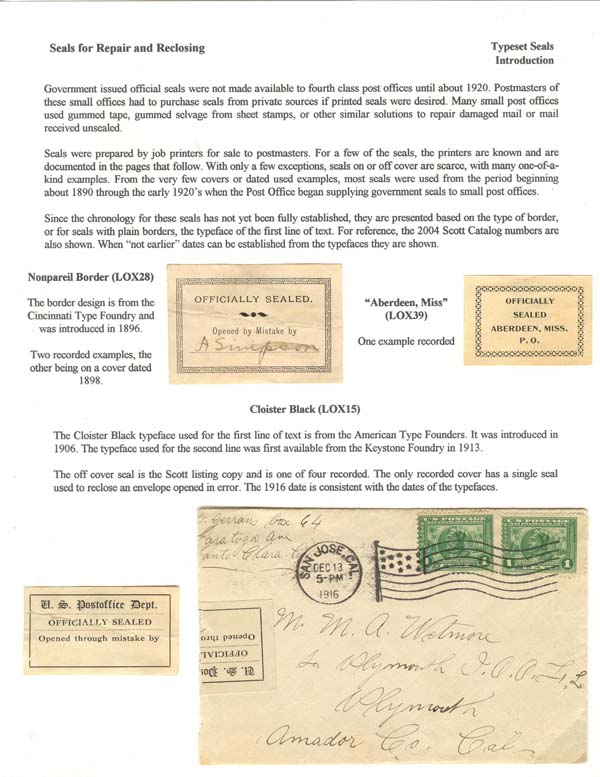 Seals for Repair and Reclosing
Typeset Seals
Introduction
Government issued official seals were not made available to fourth class post offices until about 1920. Postmasters of
these small offices had to purchase seals from private sources if printed seals were desired. Many small post offices
used gummed tape, gummed selvage from sheet stamps, or other similar solutions to repair damaged mail or mail
received unsealed.
Seals were prepared by job printers for sale to postmasters. For a few of the seals, the printers are known and are
documented in the pages that follow. With only a few exceptions, seals on or off cover are scarce, with many one-of-a-
kind examples. From the very few covers or dated used examples, most seals were used from the period beginning
about 1890 through the early 1920's when the Post Office began supplying government seals to small post offices.
Since the chronology for these seals has not yet been fully established, they are presented based on the type of border,
or for seals with plain borders, the typeface of the first line of text. For reference, the 2004 Scott Catalog numbers are
also shown. When "not earlier" dates can be established from the typefaces they are shown.
Nonpareil Border (LOX28)
The border design is from the
Cincinnati Type Foundry and
was introduced in 1896.
Two recorded examples, the
other being on a cover dated
1898.
OFFICIALLY SEALED.
Opened by Mistake by
A Simpson
"Aberdeen, Miss"
(LOX39)
One example recorded
OFFICIALLY
SEALED
ABERDEEN, MISS.
P. O.
Cloister Black (LOX15)
The Cloister Black typeface used for the first line of text is from the American Type Founders. It was introduced in
1906. The typeface used for the second line was first available from the Keystone Foundry in 1913.
The off cover seal is the Scott listing copy and is one of four recorded. The only recorded cover has a single seal
used to reclose an envelope opened in error. The 1916 date is consistent with the dates of the typefaces.
U. S. Postoffice Dept.
OFFICIALLY SEALED
Opened through mistake by
Box 64
Saratoga Ave
Santa Clara
SAN JOSE, CAL.
DEC 13
5-PM
1916
U.S. POSTAGE
1
U.S. POSTAGE
1 1
Opened thro
OFFICIAL
U. S. Pos
Mr. M. A. Wetmore
Plymouth I.O.O.F.
Plymouth
Amador Co. Cal